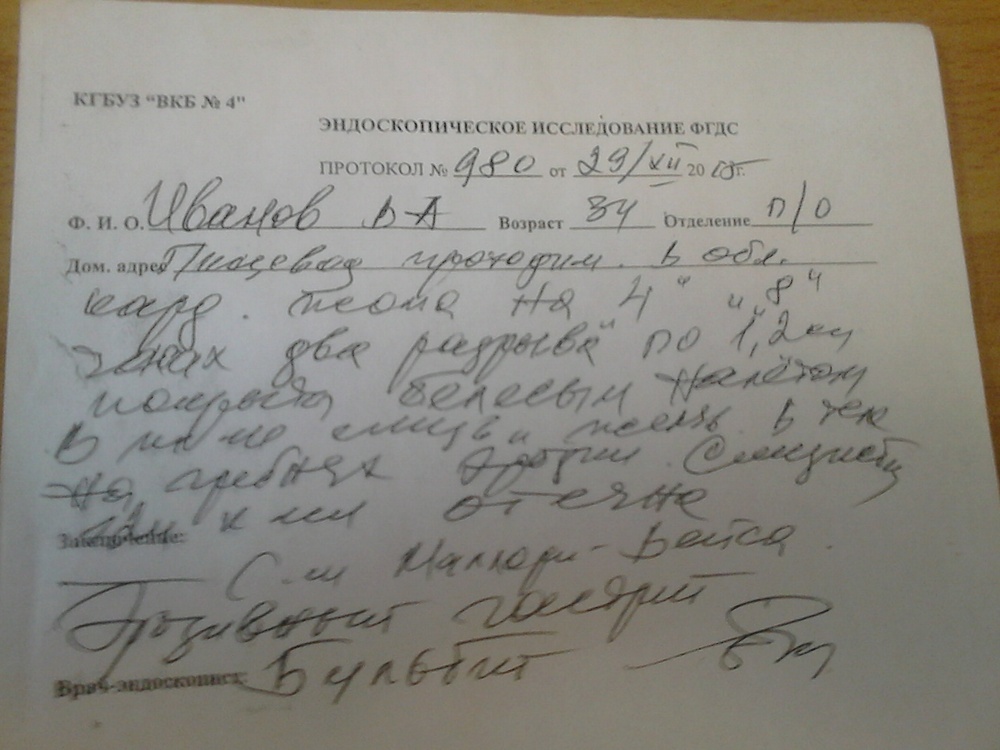 КГБУЗ "ВКБ № 4"
ЭНДОСКОПИЧЕСКОЕ ИССЛЕДОВАНИЕ ФГДС
ПРОТОКОЛ № 980 от 29/XII 20 15г.
Ф. И. О. Иванов В А Возраст 34 Отделение п/о
Дом. адрес Пищевод проходим. В обл.
кард. жома на 4" "8"
два разрыва по 1,2 см
покрыты белесым налётом
В
на гребнях эрозии. Слизистая
отечна
Заключение:
С-м Маллори-Вейса.
Эрозивный гастрит
Врач-эндоскопист: Бульбит